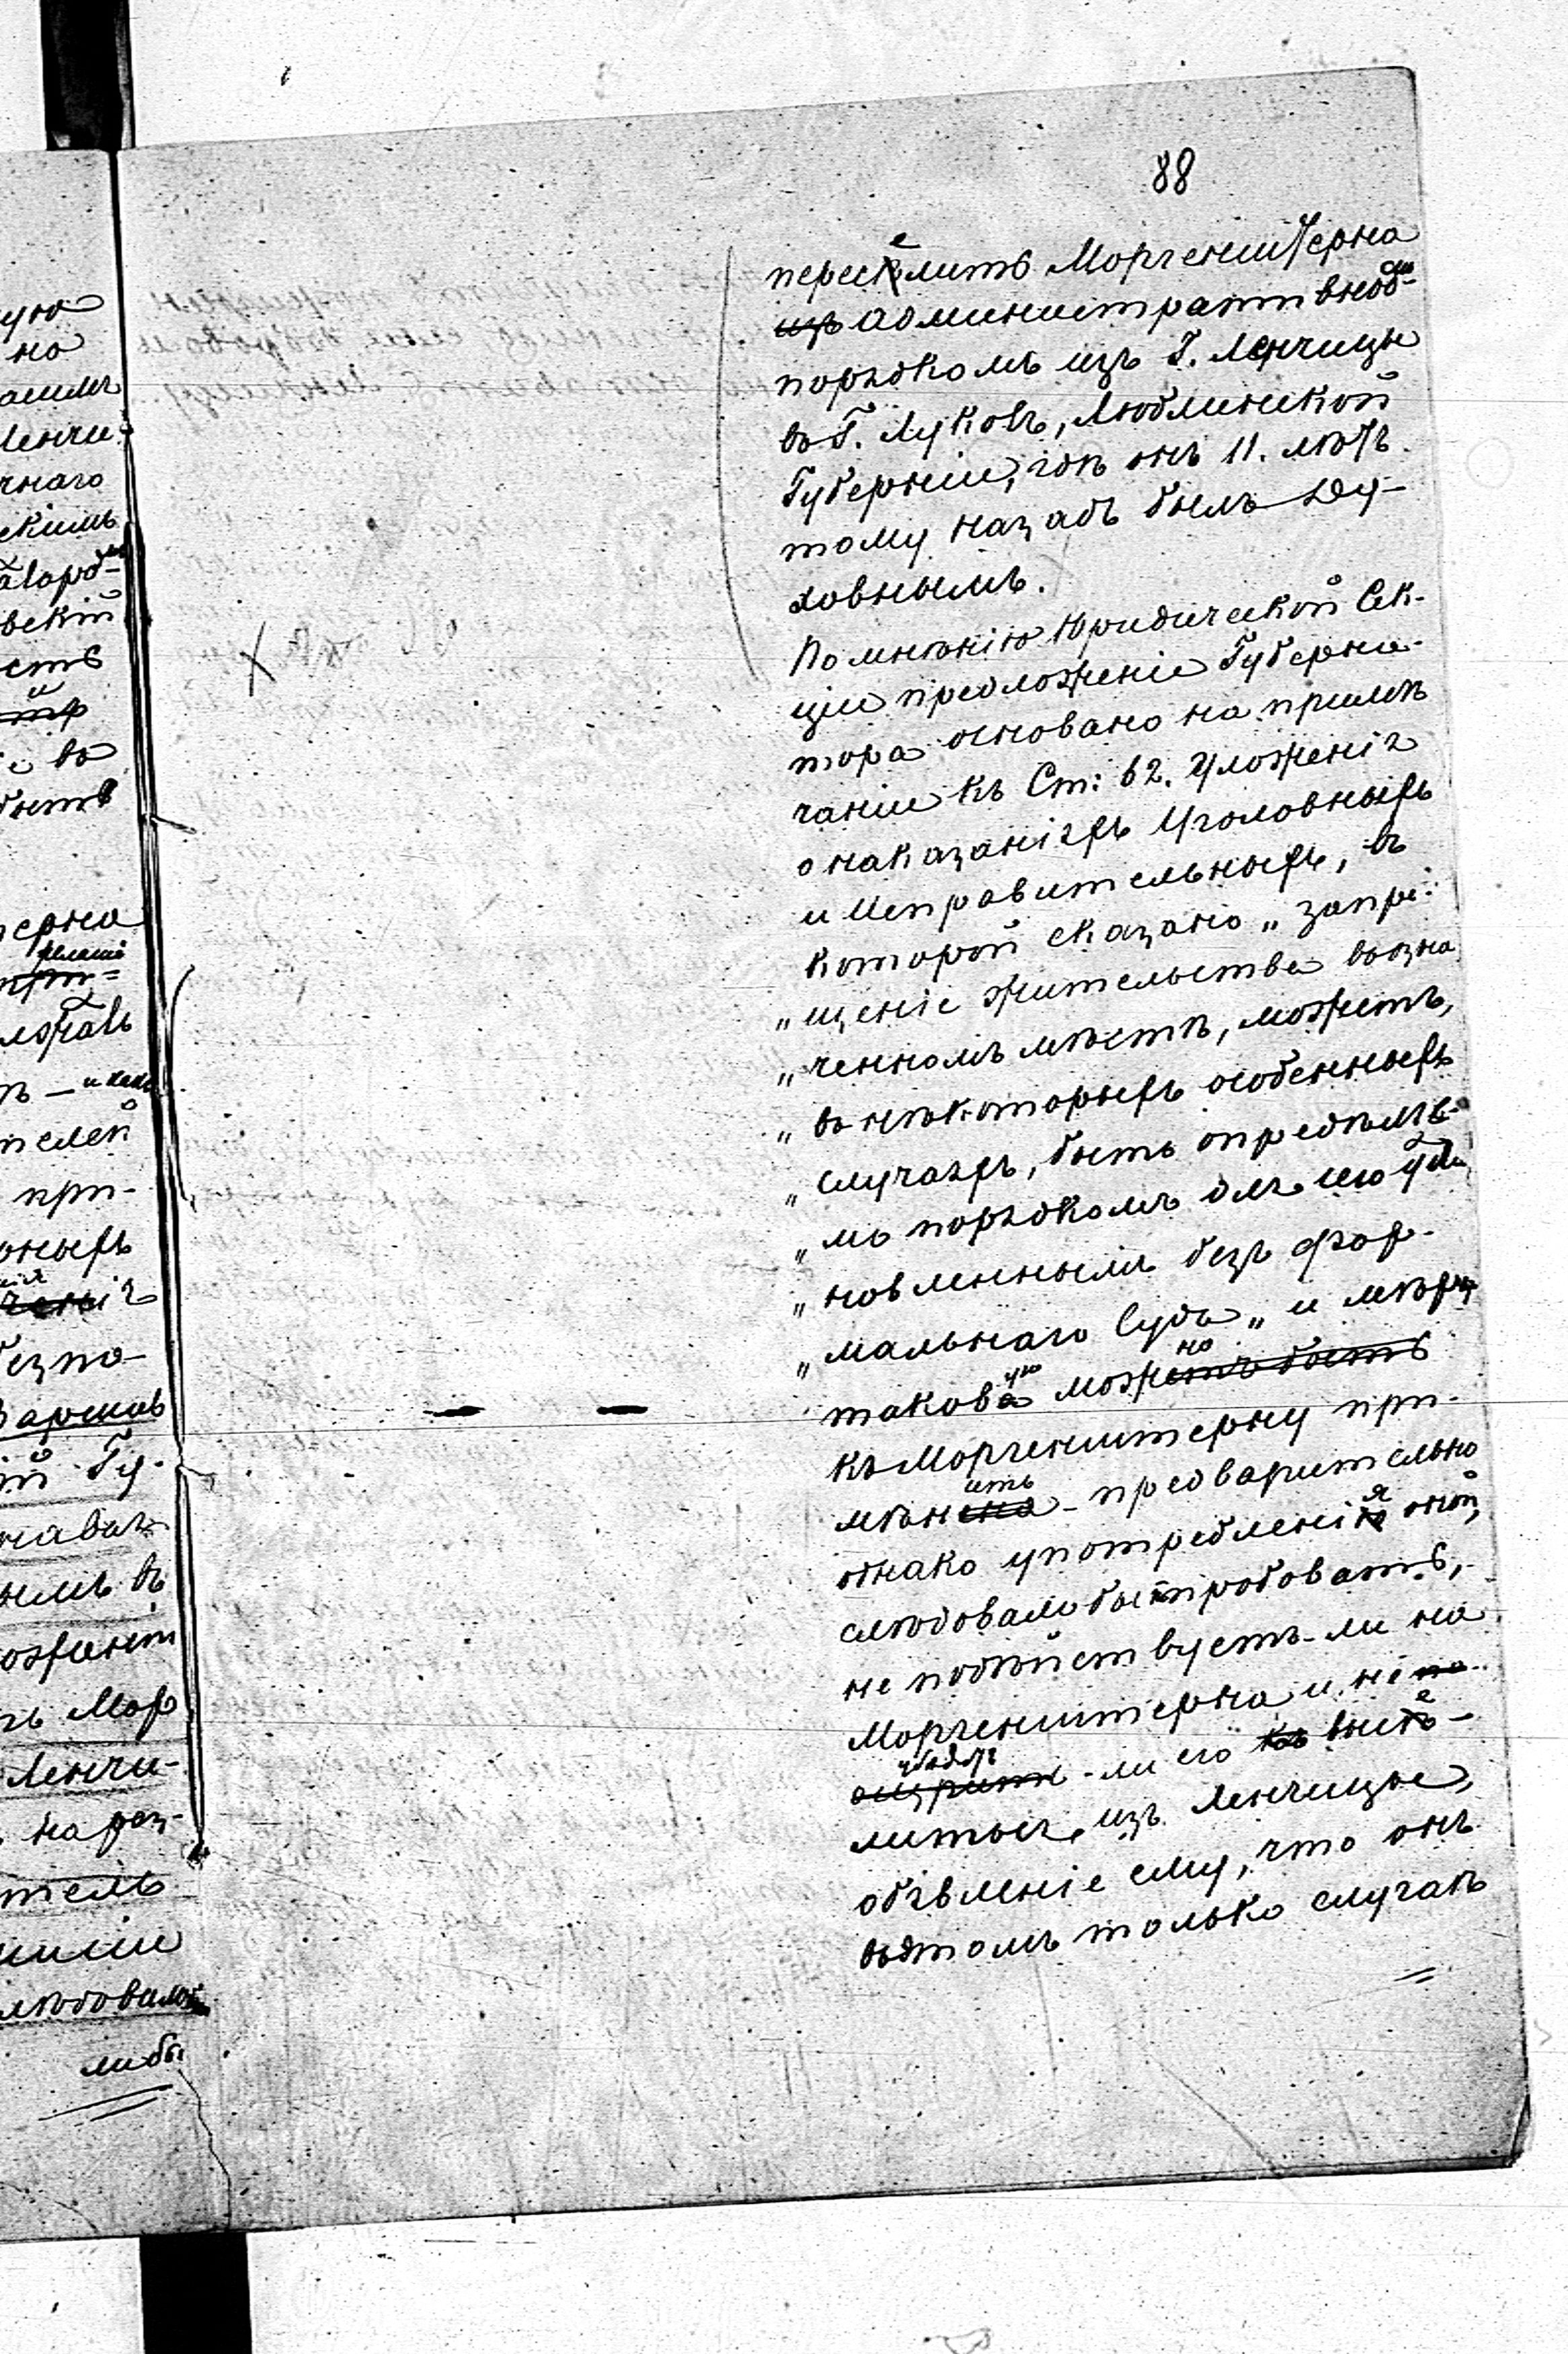 88
переселить Моргенштерна
административнымъ
порядкомъ изъ Г. Ленчицы
въ Г. Луковъ, Люблинской
Губерніи, гдѣ онъ 11. лѣтъ
тому назадъ былъ Ду-
ховнымъ.
По мнѣнію Юридической Сек-
ціи предложеніе Губерна-
тора основано на примѣ
чаніи къ Ст: 62. Уложенія
о наказаніяхъ Уголовныхъ
и Исправительныхъ, въ
которой сказано „запре-
„щеніе жительства въ озна
„ченномъ мѣстѣ, можетъ,
„въ нѣкоторыхъ особенныхъ
„случаяхъ, быть опредѣляе-
„мо порядкомъ для сего уста
„новленнымъ безъ фор-
„мальнаго Суда„ и мѣру
такову можно
къ Моргенштерну при-
мѣнить - предварительно
однако употребленія оной,
слѣдовало бы пробовать,
не подѣйствуетъ-ли на
Моргенштерна и не
-ли его высе-
литься изъ Ленчицы,
объявленіе ему, что онъ
въ этомъ только случаѣ
ую
но
Ленчи-
чнаго
скимъ
вскій
сть
и
въ
быть
терна
при-
безпо-
Варшав
ій Гу-
нымъ въ
Мор
Ленчи-
на раз-
тель
слѣдовало
ли бы